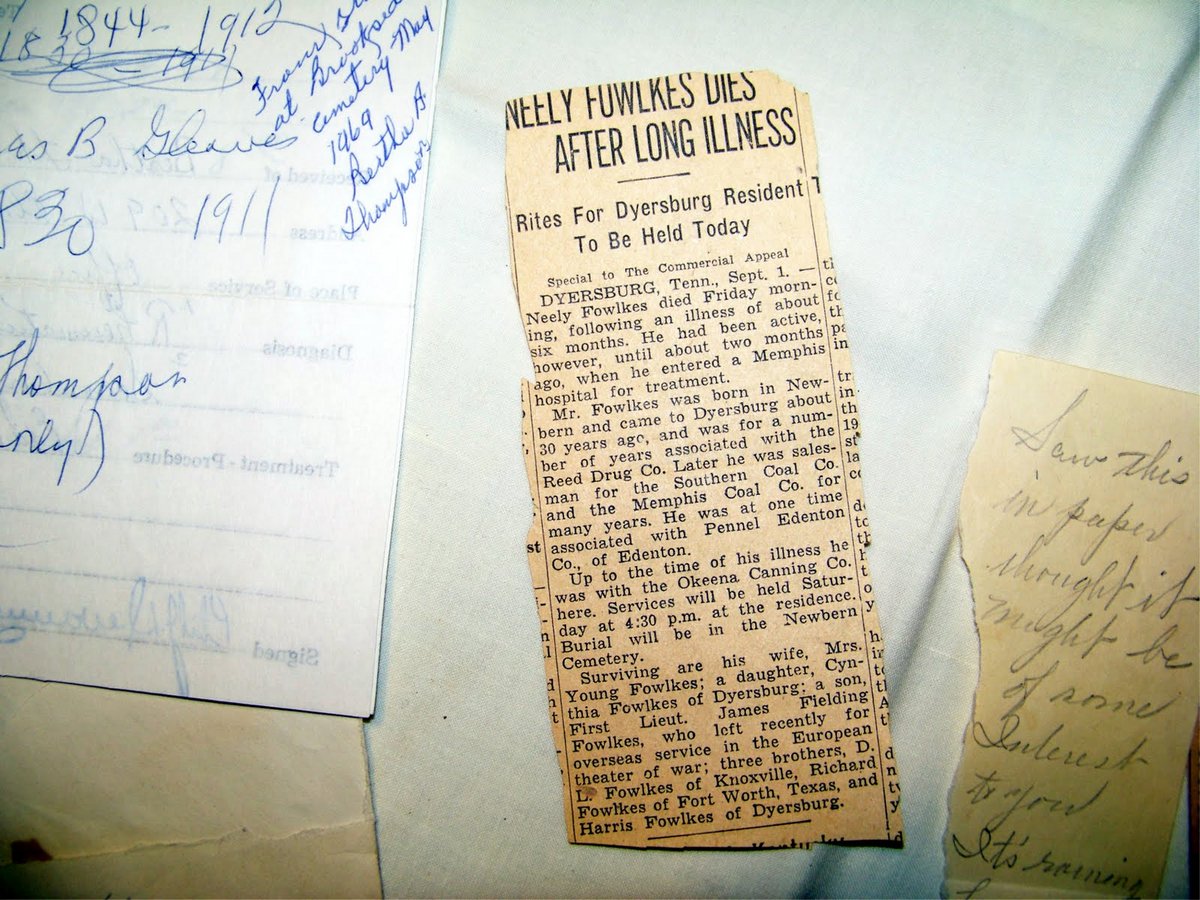 1844- 1912
1830 - 1911
from
at Brookside
cemetery May
1969
Bertha A.
Thompson
as B Gleaves
830 1911
Thompson
only)
Received of
Address
Place of Service
Diagnosis
Treatment - Procedure
Signed
NEELY FOWLKES DIES
AFTER LONG ILLNESS
Rites For Dyersburg Resident
To Be Held Today
Special to The Commercial Appeal
DYERSBURG, Tenn., Sept. 1. —
Neely Fowlkes died Friday morn-
ing, following an illness of about
six months. He had been active,
however, until about two months
ago, when he entered a Memphis
hospital for treatment.
Mr. Fowlkes was born in New-
bern and came to Dyersburg about
30 years ago, and was for a num-
ber of years associated with the
Reed Drug Co. Later he was sales-
man for the Southern Coal Co.
and the Memphis Coal Co. for
many years. He was at one time
associated with Pennel Edenton
Co., of Edenton.
Up to the time of his illness he
was with the Okeena Canning Co.
here. Services will be held Satur-
day at 4:30 p.m. at the residence.
Burial will be in the Newbern
Cemetery.
Surviving are his wife, Mrs.
Young Fowlkes; a daughter, Cyn-
thia Fowlkes of Dyersburg; a son,
First Lieut. James Fielding
Fowlkes, who left recently for
overseas service in the European
theater of war; three brothers, D.
L. Fowlkes of Knoxville, Richard
Fowlkes of Fort Worth, Texas, and
Harris Fowlkes of Dyersburg.
Saw this
in paper
thought it
might be
of some
Interest
to you
It's raining